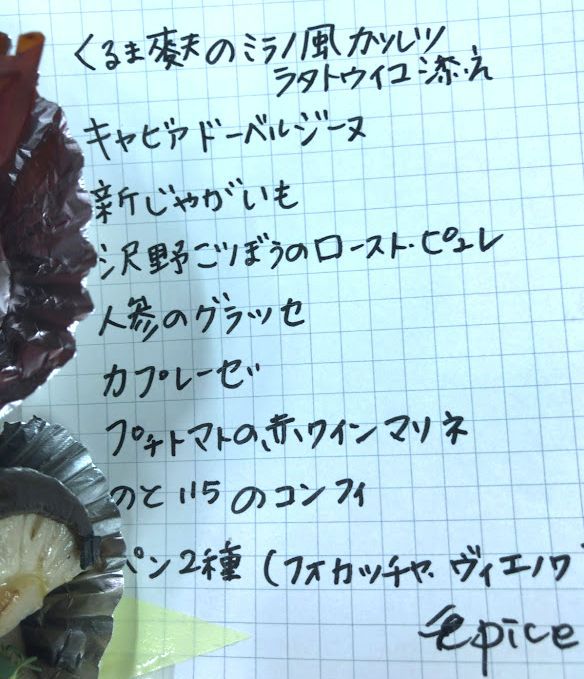 くるま麩のミラノ風カツレツ
ラタトウイユ添え
キャビアドーベルジーヌ
新じゃがいも
沢野ごぼうのロースト・ピュレ
人参のグラッセ
カプレーゼ
プチトマトの赤ワインマリネ
のと115のコンフィ
パン2種(フォカッチャ・ヴィエノワ
epice